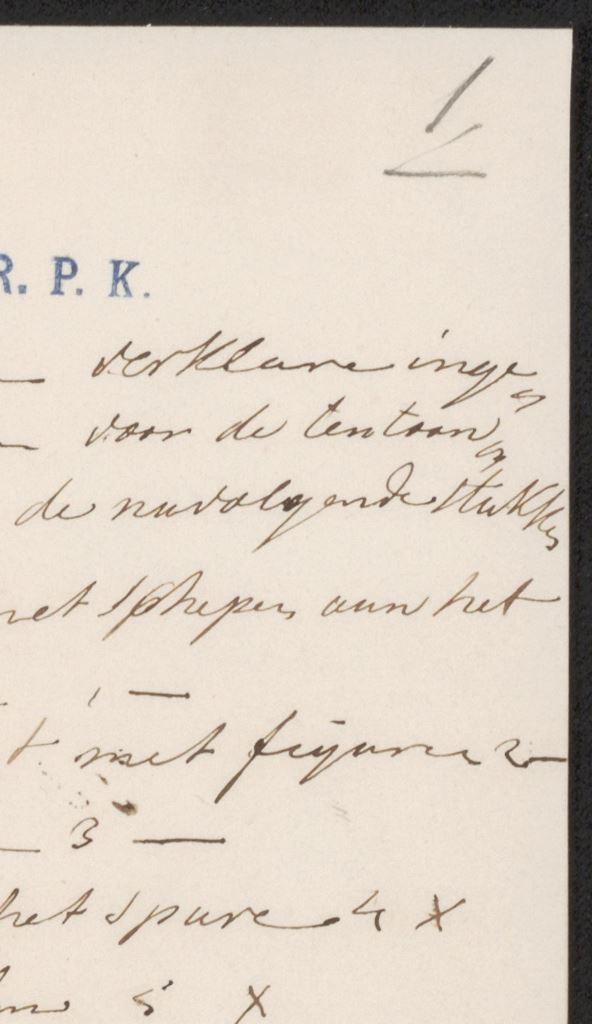 1
R. P. K.
verklare inge
voor de tentoon
de navolgende stukken
met schepen aan het
1 —
t met figuren 2 —
— 3 —
het spare 4 X
5 X